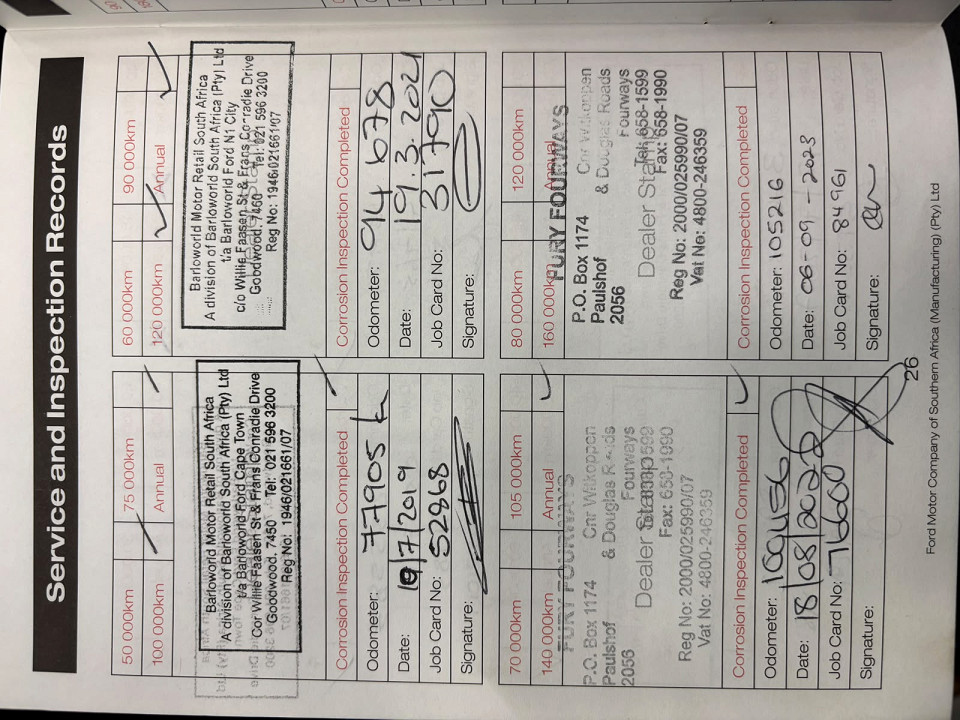 Service and Inspection Records
50 000km
75 000km
100 000km
Annual
Barloworld Motor Retail South Africa
A division of Barloworld South Africa (Pty) Ltd
t/a Barloworld Ford Cape Town
Cor Willie Faasen St & Frans Conradie Drive
Goodwood, 7450 Tel: 021 596 3200
Reg No: 1946/021661/07
Corrosion Inspection Completed
Odometer: 77905 k
Date: 19/7/2019
Job Card No: 52868
Signature:
60 000km
90 000km
120 000km
Annual
Barloworld Motor Retail South Africa
A division of Barloworld South Africa (Pty) Ltd
t/a Barloworld Ford N1 City
c/o Willie Faasen St & Frans Conradie Drive
Goodwood, 7460 Tel: 021 596 3200
Reg No: 1946/021661/07
Corrosion Inspection Completed
Odometer: 094 678
Date: 19.3.2021
Job Card No: 31790
Signature:
70 000km
105 000km
140 000km
Annual
FURY FOURWAYS
P.O. Box 1174 Cnr Witkoppen
Paulshof & Douglas Roads
2056 Fourways
Dealer Stamp
Fax: 658-1990
Reg No: 2000/025990/07
Vat No: 4800-246359
Corrosion Inspection Completed
Odometer: 100456
Date: 18/08/2022
Job Card No: 76660
Signature:
80 000km
120 000km
160 000km
Annual
FURY FOURWAYS
P.O. Box 1174 Cnr Witkoppen
Paulshof & Douglas Roads
2056 Fourways
Dealer Stamp
Tel: 658-1599
Fax: 658-1990
Reg No: 2000/025990/07
Vat No: 4800-246359
Corrosion Inspection Completed
Odometer: 105216
Date: 06-09-2023
Job Card No: 84961
Signature:
26
Ford Motor Company of Southern Africa (Manufacturing) (Pty) Ltd